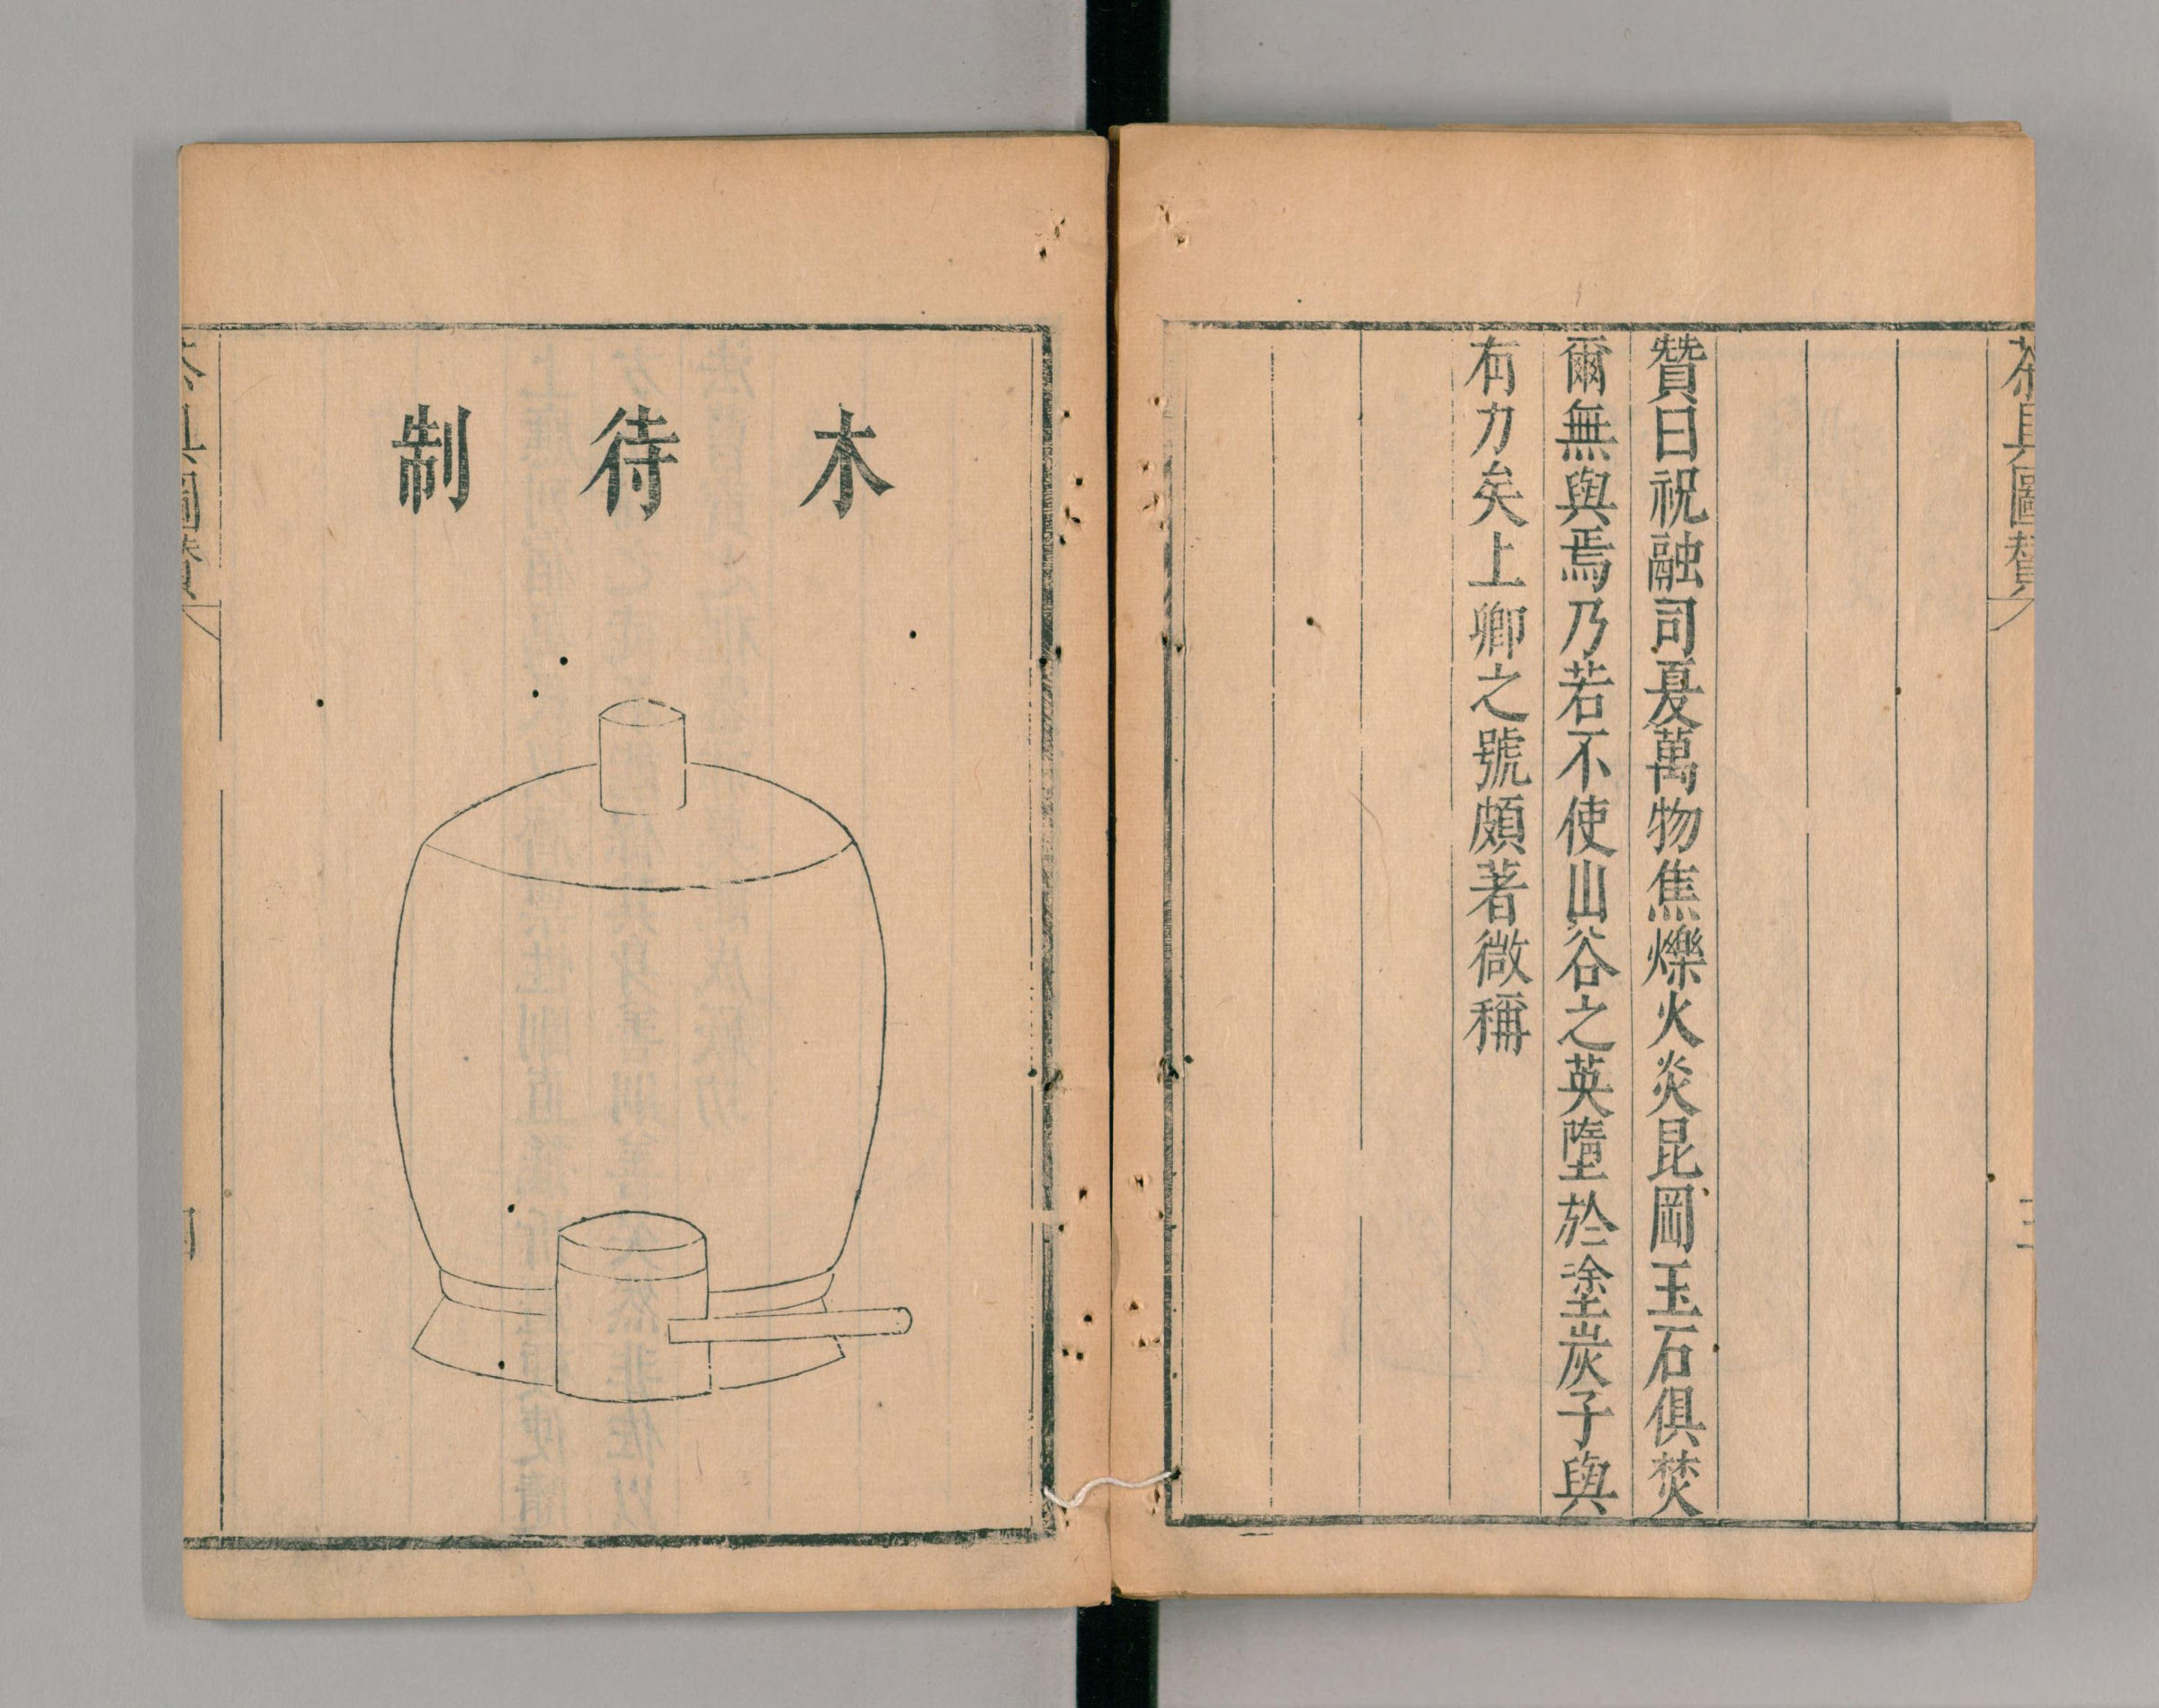 茶具圖贊
三
贊曰祝融司夏萬物焦爍火炎昆岡玉石俱焚
爾無與焉乃若不使山谷之英墮於塗炭子與
有力矣上卿之號頗著微稱
木待制
茶具圖贊